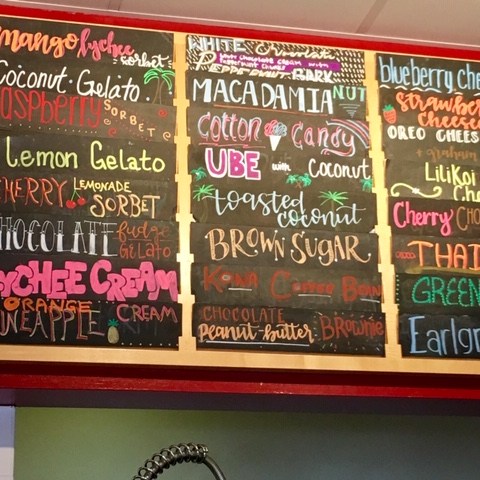 mango lychee sorbet
Coconut · Gelato
raspberry SORBET
Lemon Gelato
CHERRY LEMONADE SORBET
CHOCOLATE fudge Gelato
LYCHEE CREAM
ORANGE PINEAPPLE CREAM
WHITE Chocolate
PEPPERMINT BARK
MACADAMIA NUT
cotton candy
UBE with Coconut
toasted coconut
BROWN SUGAR
KONA COFFEE BEAN
CHOCOLATE Peanut butter BROWNIE
blueberry che
strawber
cheesec
OREO CHEES
+ graham
LiLiKoi
Che
Cherry CHO
THAI
GREEN
Earlgr